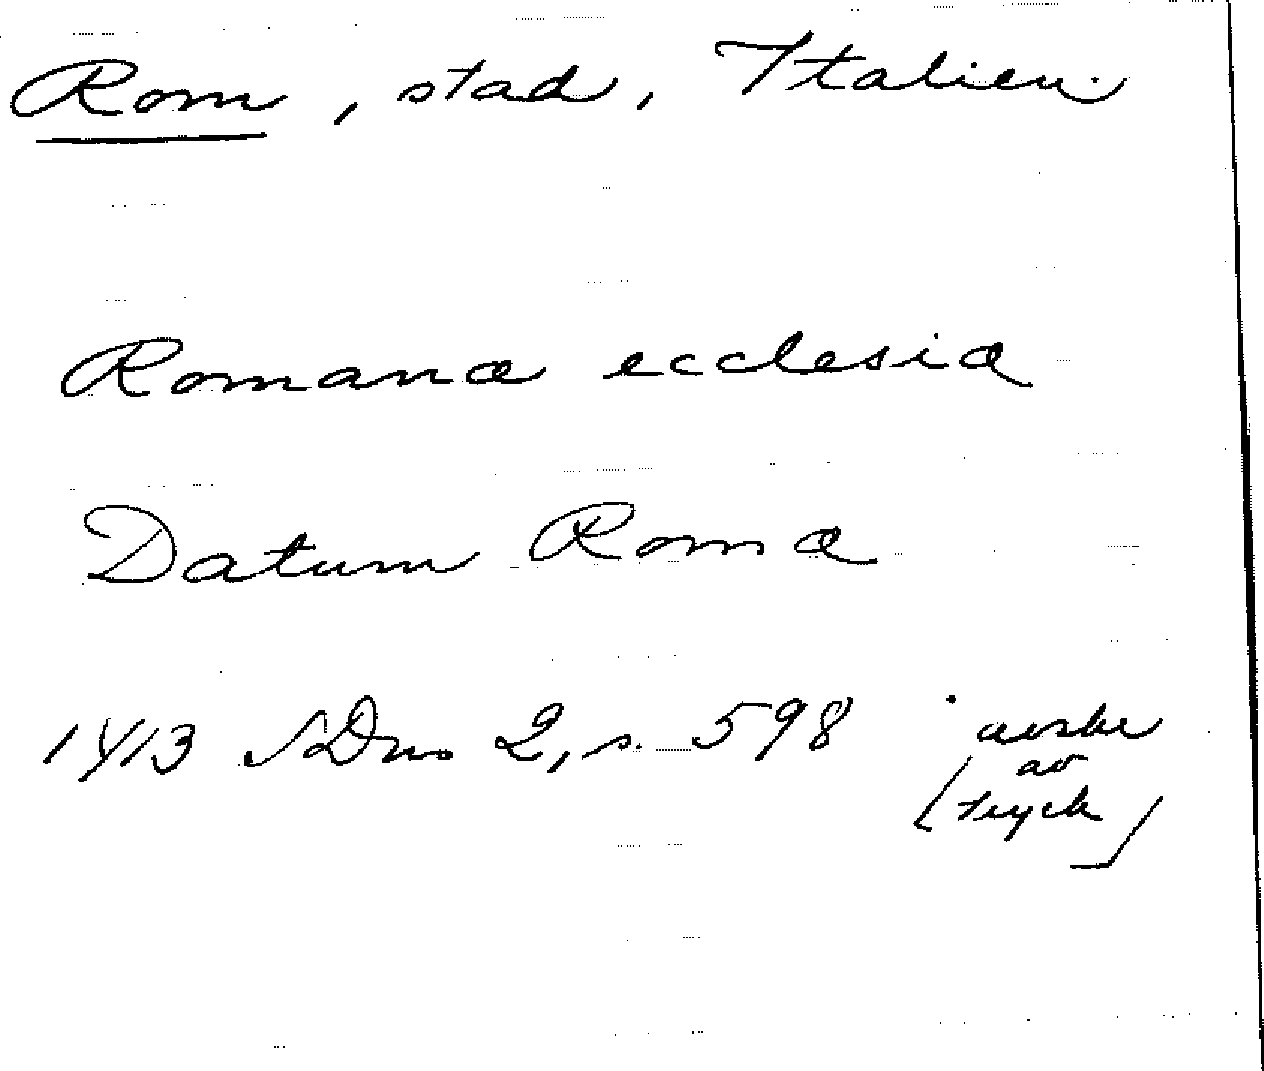 Rom, stad, Italien.
Romanæ ecclesiæ
Datum Romæ
1413 SDns 2, s. 598
avskr
av
[tryck]